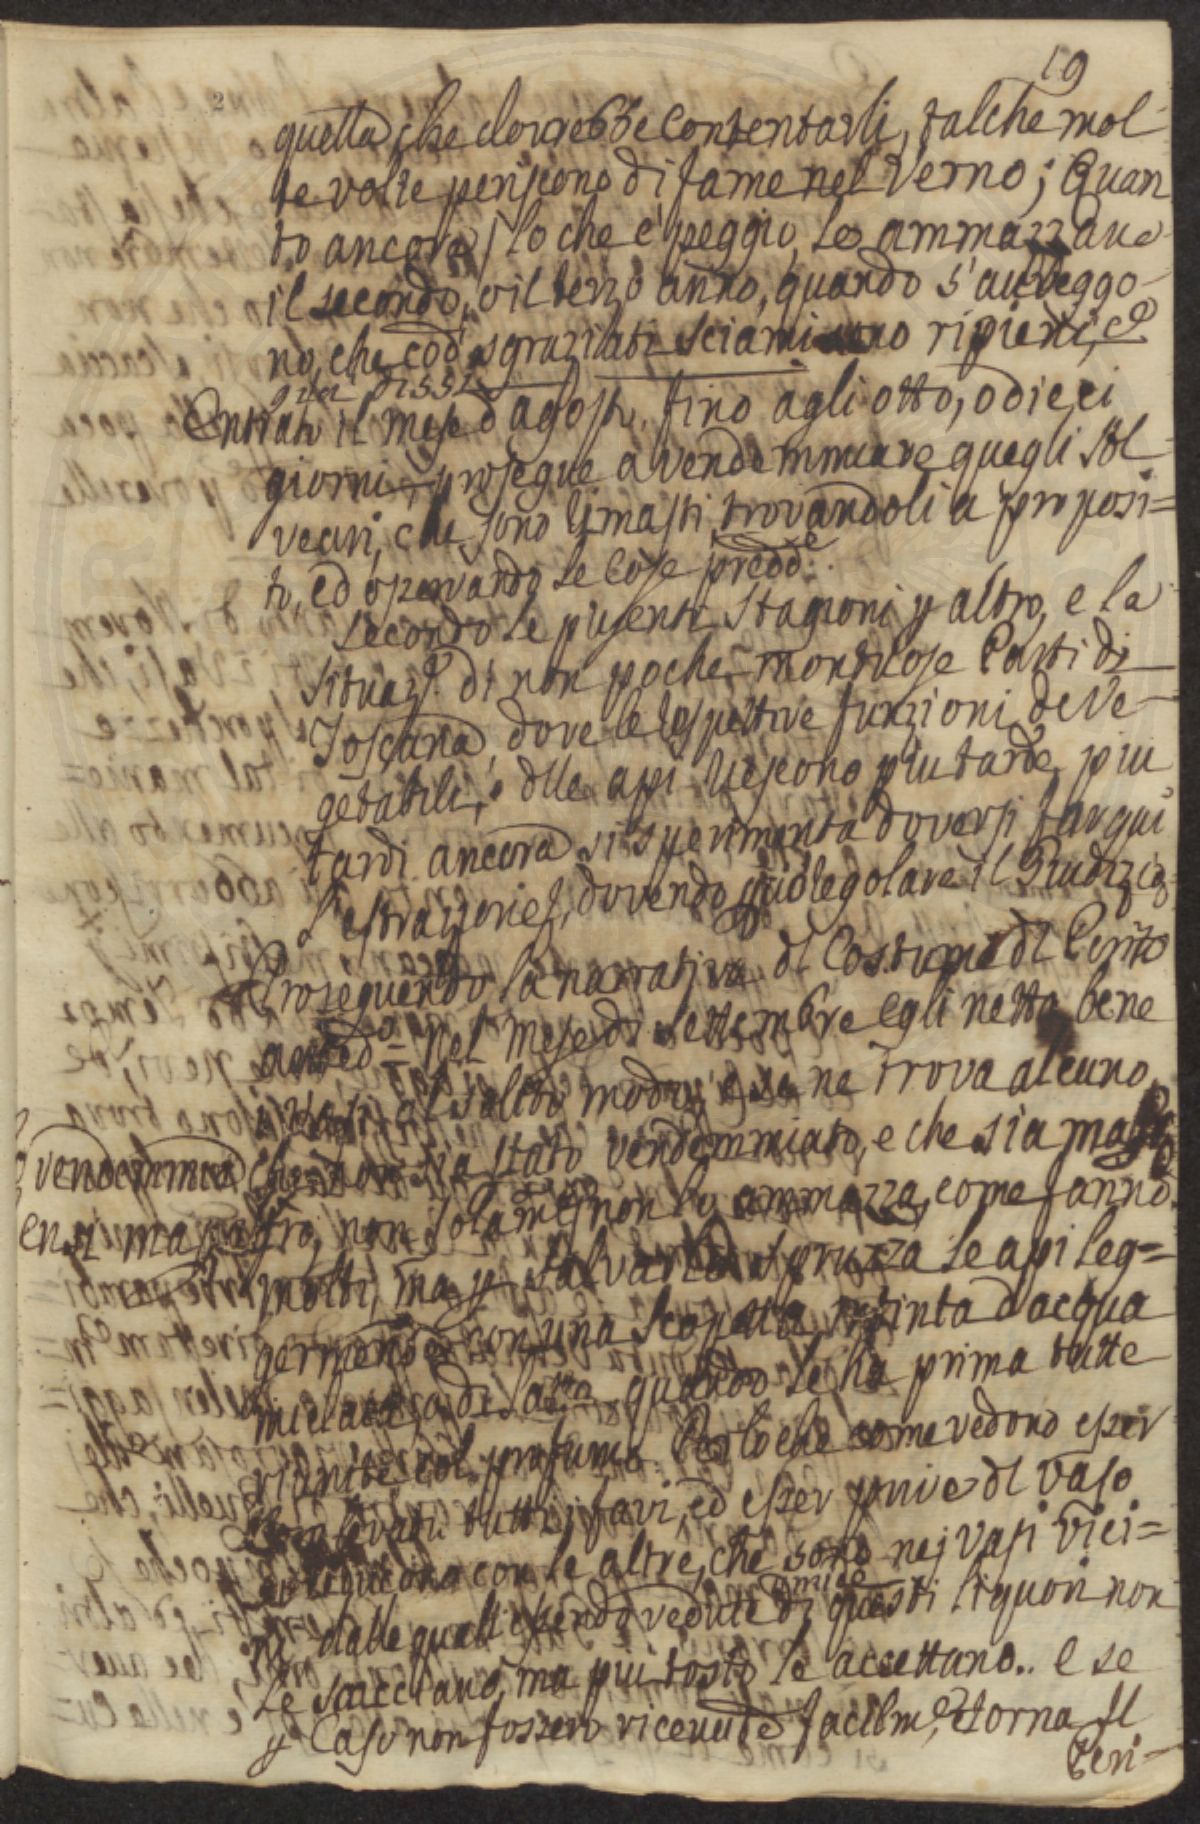 19
2
quella che dovrebbe contentarli, talche mol-
te volte periscono di fame nel Verno; Quan
to ancora / lo che è peggio, le ammazzano
il secondo, o il terzo anno, quando s'avveggo-
no, che così sgraziati sciami sono ripieni, &
Entrato il mese d'agosto, fino agli otto, o dieci
giorni prosegue a vendemmiare quegli Al-
veari, che sono rimasti trovandoli a proposi=
to, ed operando le cose predd.e
secondo le presenti Stagioni p altro, e la
situaz.e di non poche montuose Parti di
Toscana, dove le respettive funzioni de Ve-
getabili, e dlle api riescono più tarde, più
tardi ancora si sperimenta doversi far qui
l'estrazione, dovendo regolare il Giudizio
Proseguendo la narrativa dl Costume dl Perito
nel mese di settembre egli netta bene
i vasi al solito modo, e se ne trova alcuno
vendemmia che non sia stato vendemmiato, e che sia ma
non solam.e non lo ammazza, come fanno
molti, ma p salvarlo spruzza le api leg=
germente con una scopetta intinta d'acqua
mielata, o di latte quando le ha prima tutte
riunite col profumo. Perloche come vedono esser
tutti i favi, ed esser prive dl vaso
con le altre, che sono nei vasi vici=
ni dalle quali essendo vedute di questi liquori non
le scacciano, ma più tosto le accettano.. e se
p Caso non fossero ricevute facilm.e, torna Il
Peri-